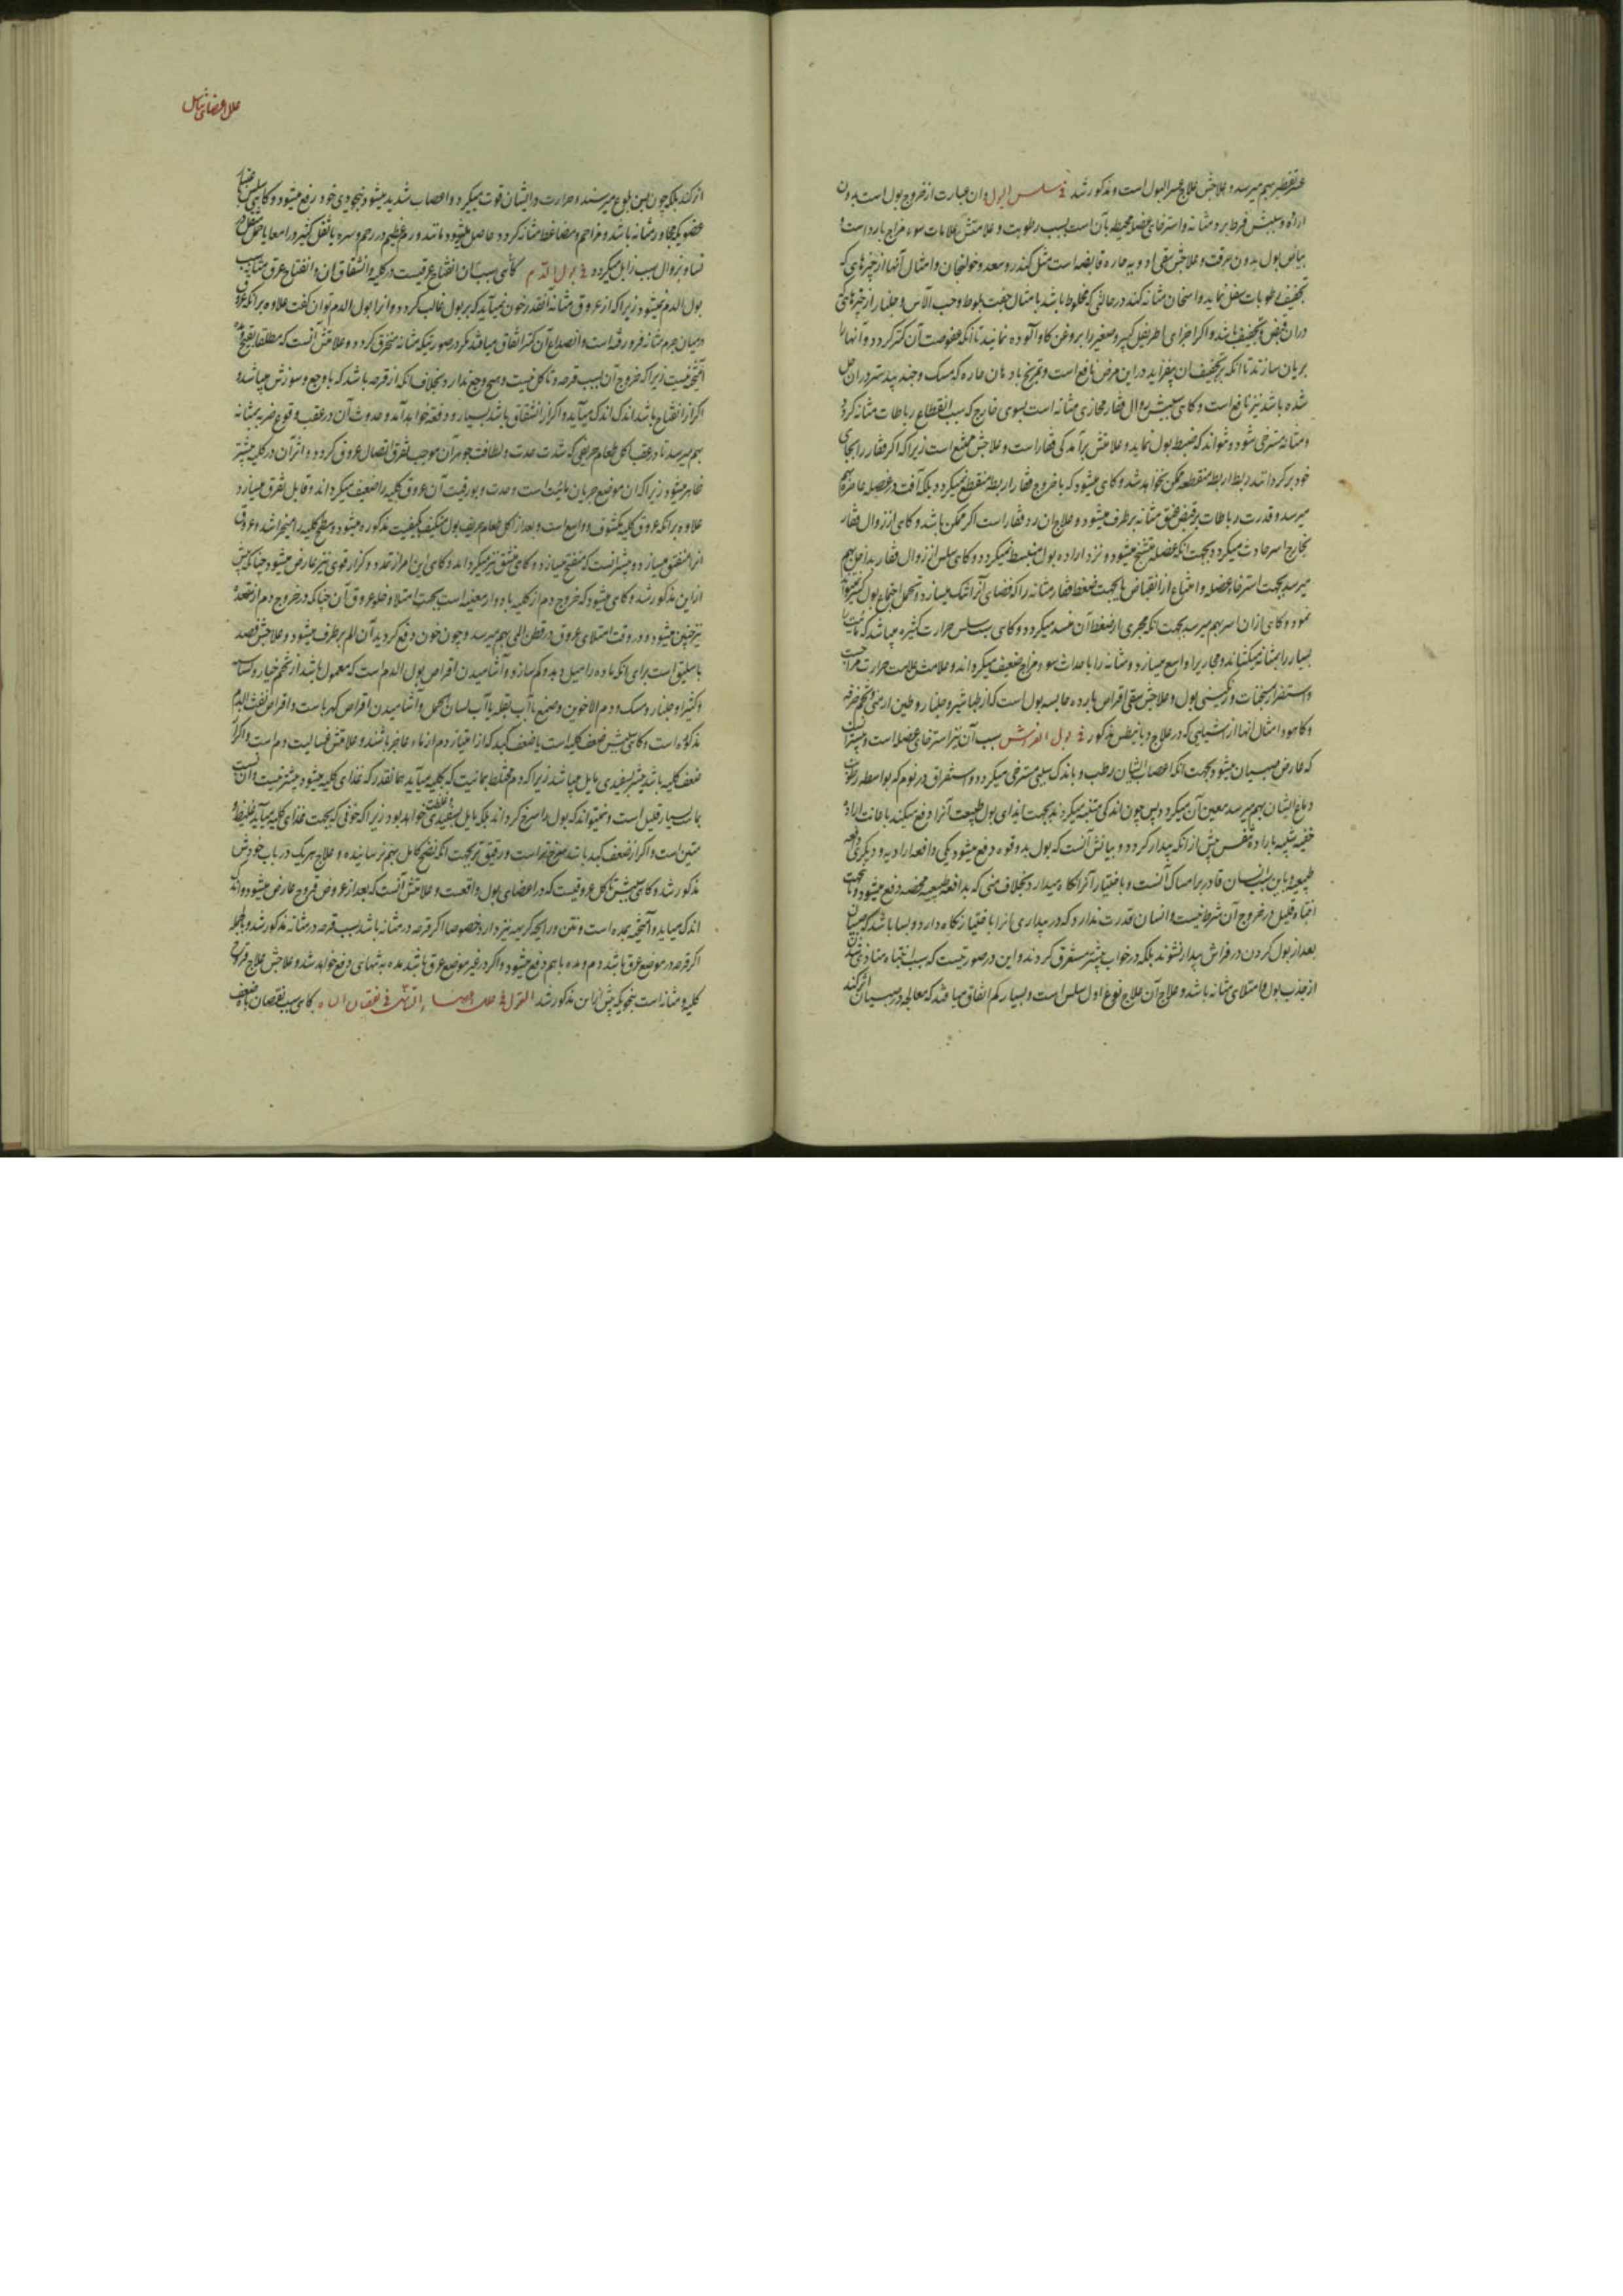 عسر تقطیر بهم میرسد و علاجش علاج عسر البول است و مذکور شد فی سلس البول و آن عبارت از خروج بول است بدون
اراده و سببش فرط برد مثانه و استرخای عضله محیط بآن است بسبب رطوبت و علامتش علامات سوء مزاج بارد است و
بیاض بول بدون حرقت و علاجش سقی ادویه حاره قابضه است مثل کندر و سعد و خولنجان و امثال آنها از چیزهای که
تجفیف رطوبات سفل نماید و اسخان مثانه کند در حالتی که مخلوط باشد با مثال جفت بلوط و حب الآس و جلنار از چیزهای که
در ان قبض و تجفیف باشد و اکر اجزای اطریفل کبیر و صغیر را بروغن کاو آلوده نمایند تا انکه عفوصت آن کمتر کردد و آنها را
بریان سازند تا انکه بر تجفیف ان بیفزاید در این مرض نافع است و تمریخ بادهان حاره که مسک و جند بیدستر در ان حل
شده باشد نیز نافع است و کاهی سببش زوال فقار محاذی مثانه است بسوی خارج که بسبب انقطاع رباطات مثانه کردد
و مثانه مسترخی شود و نتواند که ضبط بول نماید و علامتش برآمدکی فقار است و علاجش ممتنع است زیرا که اکر فقار را بجای
خود برکردانند ربط اربطه منقطعه ممکن نخواهد شد و کاهی میشود که با خروج فقار اربطه منقطع نمیکردد بلکه آفت در عضله عاصره بهم
میرسد و قدرت رباطات بر قبض عنق مثانه برطرف میشود و علاج ان رد فقار است اکر ممکن باشد و کاهی از زوال فقار
بخارج اسر حادث میکردد بجهت انکه عضله متشنج میشود و نزد اراده بول منبسط نمیکردد و کاهی سلس از زوال فقار بداخل بهم
میرسد بجهت استرخاء عضله و امتناع از انقباض یا بجهت ضغط فقار مثانه را که فضای آنرا تنک میسازد و تحمل اجتماع بول کثیر نتواند
نمود و کاهی از ان اسر بهم میرسد بجهت انکه مجری از ضغط آن منسد میکردد و کاهی سبب سلس حرارت کثیره میباشد که مائیت را
بسیار را بمثانه میکشاند و مجاریرا واسع میسازد و مثانه را با حداث سوء مزاج ضعیف میکرداند و علامتش علامت حرارت مزاجست
و استضرار بسخنات و رنکینی بول و علاجش سقی اقراص بارده حابسه بول است که از طباشیر و جلنار و طین ارمنی و تخم خرفه
و کاهو و امثال انها از اشیائی که در علاج دیانیطس مذکور فی بول الفراش سبب آن نیز استرخای عضله است و بیشتر انست
که عارض صبیان میشود بجهت انکه اعصاب ایشان رطب و باندک سببی مسترخی میکردد و استغراق در نوم که بواسطه رطوبت
دماغ ایشان بهم میرسد معین آن میکردد پس چون اندکی متنبه میکردند بجهت ایذای بول طبیعت آنرا دفع میکند با عانت اراده
خفیه شبیه باراده تنفس پیش از انکه بیدار کردد و بیانش آنست که بول بدو قوه دفع میشود یکی دافعه ارادیه و دیکری دافعه
طبیعیه و باین سبب انسان قادر بر امساک آنست و با ختیار آنرا نکاه میدارد بخلاف منی که بدافعه طبیعیه محضه دفع میشود و بجهت
انتباه قلیل در خروج آن شرط نیست و انسان قدرت ندارد که در بیداری انرا باختیار نکاه دارد و بسا باشد که صبیان
بعد از بول کردن در فراش بیدار نشوند بلکه در خواب بیشتر مستغرق کردند و این در صورتیست که سبب انتباه متاذی شدن
از جذب بول و امتلای مثانه باشد و علاج آن علاج نوع اول سلس است و بسیار کم اتفاق میافتد که معالجه در صبیان اثر کند
علل اعضای تناسل
اثر کند بلکه چون بسن بلوغ میرسند و حرارت و ایشان قوت میکیرد و اعصاب شدید میشود بخودی خود رفع میشود و کاهی سلس
عضویکه مجاور مثانه باشد و مزاحم و ضاغط مثانه کردد حاصل میشود مانند ورم عظیم در رحم و سره یا ثفل کثیر در امعا یا حمل
نساء و بزوال سبب زایل میکردد فی بول الدم کاهی سبب آن انفتاح عرقیست در کلیه و انشقاق ان و انفتاح عرق مثانه سبب
بول الدم نمیشود زیرا که از عروق مثانه آنقدر خون نمیآید که بر بول غالب کردد و انرا بول الدم توان کفت علاوه بر انکه عروق
در میان جرم مثانه فرو رفته است و انصداع آن کمتر اتفاق میافتد مکر در صورتیکه مثانه منخرق کردد و علامتش آنست که مطلقا بقیح
آمیخته نیست زیرا که خروج آن بسبب قرحه و تاکل نیست و هیچ وجع ندارد بخلاف انکه از قرحه باشد که با وجع و سوزش میباشد و
اکر از انفتاح باشد اندک اندک میآید و اکر از انشقاق باشد بسیار و دفعة خواهد آمد و حدوث آن در عقب وقوع ضربه بمثانه
بهم میرسد یا در عقب اکل طعام حریفی که شدت حدت و لطافت جوهر آن موجب تفرق اتصال عروق کردد و اثر آن در کلیه بیشتر
ظاهر میشود زیرا که ان موضع جریان مائیت است و حدت و بورقیت آن عروق کلیه را ضعیف میکرداند و قابل تفرق میسازد
علاوه بر انکه عروق کلیه مکشوف و واسع است و بعد از اکل طعام حریف بول متکیف بکیفیت مذکوره میشود و سطح کلیه را میخراشد و عروق
انرا منفتق میسازد و بیشتر آنست که منفتح میسازد و کاهی منشق نیز میکرداند و کاهی این امر از تمدد و کزاز قوی نیز عارض میشود چنانکه پیش
ازاین مذکور شد و کاهی میشود که خروج دم از کلیه بادوار معینه است بحسب امتلا و خلو عروق آن چنانکه در خروج دم از مقعد
نیز چنین میشود و در وقت امتلای عروق در قطن المی بهم میرسد و چون خون دفع کردید آن الم برطرف میشود و علاجش فصد
باسلیق است برای انکه ماده را میل دهد و کم سازد و آشامیدن اقراص بول الدم است که معمول باشد از تخم خیار و نشاسته
و کثیرا و جلنار و مسک و دم الاخوین و صمغ بآب بقله یا آب لسان الحمل و آشامیدن اقراص کهربا ست و اقراص نفث الدم
مذکوره است و کاهی سببش ضعف کلیه است یا ضعف کبد که از امتیاز دم از ماء عاجز باشند و علامتش غسالیت دم است و اکر از
ضعف کلیه باشد بیشتر بسفیدی مایل میباشد زیرا که دم مختلط بمائیت که بکلیه میآید بمقدار که غذای کلیه میشود بیشتر نیست و آن نسبت
بما بسیار قلیل است و نمیتواند که بول را سرخ کرداند بلکه مایل بسفیدی و غلظت خواهد بود زیرا که خونی که بجهت غذای کلیه میآید غلیظ و
متین است و اکر از ضعف کبد باشد سرخ تر است و رقیق تر بجهت انکه نضج کامل بهم نرسانیده و علاج هر یک در باب خودش
مذکور شد و کاهی سببش تاکل عروقیست که در اعضای بول واقعست و علامتش آنست که بعد از عروض قروح عارض میشود و اندک
اندک میآید و آمیخته بمده است و نتن و رایحه کریهه نیز دارد خصوصا اکر قرحه در مثانه باشد بسبب قرحه در مثانه مذکور شد و بالجمله
اکر قرحه در موضع عرق باشد دم و مده با هم دفع میشود و اکر در غیر موضع عرق باشد مده به تنهائی دفع خواهد شد و علاجش علاج قروح
کلیه و مثانه است بنحویکه پیش ازاین مذکور شد القول فی علل اعضاء التناسل فی نقصان الباه کاهی سبب نقصان باه ضعف